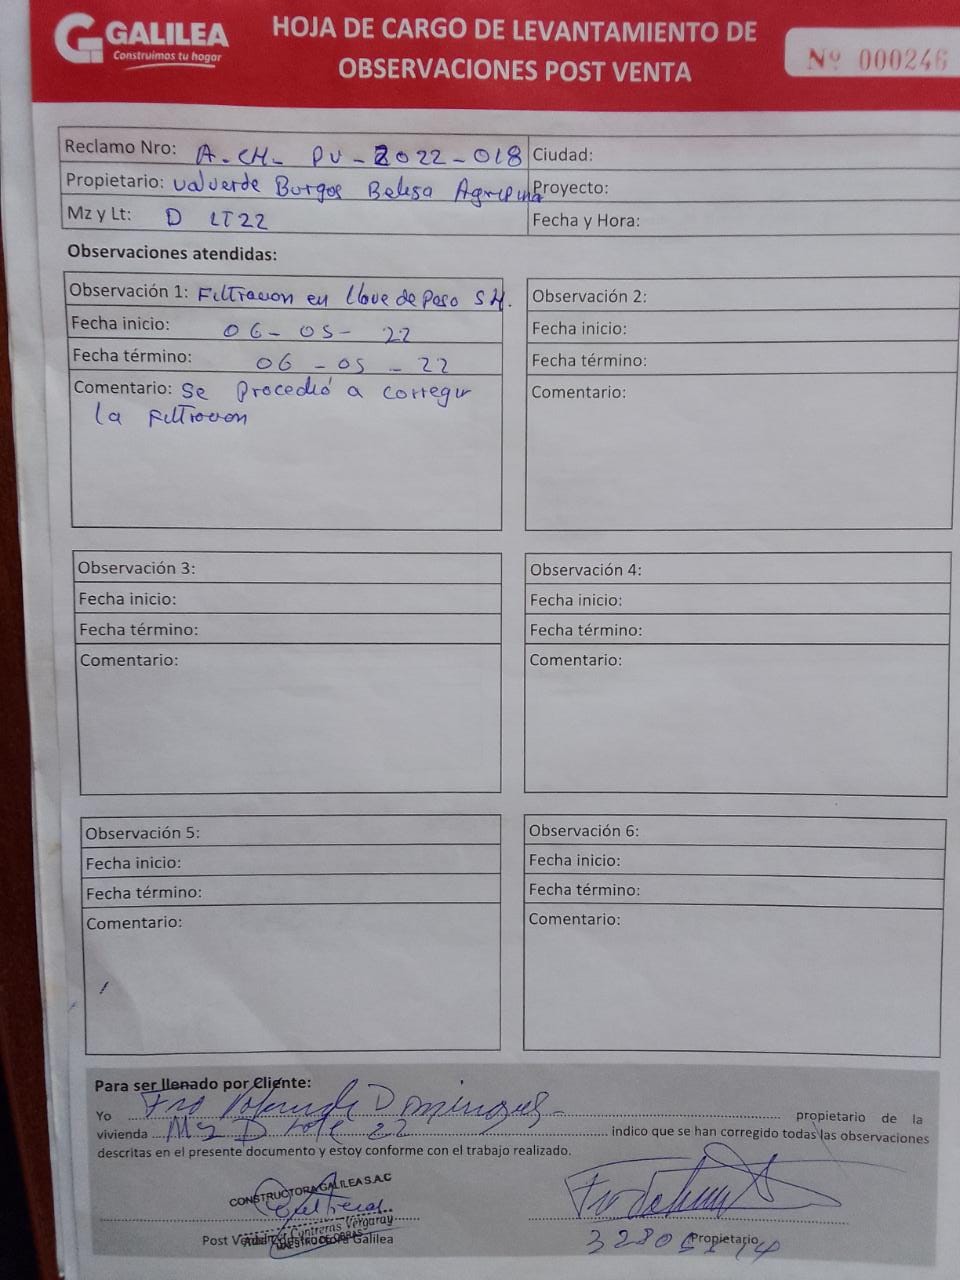 GALILEA
Construimos tu hogar
HOJA DE CARGO DE LEVANTAMIENTO DE
OBSERVACIONES POST VENTA
Nº 000246
Reclamo Nro: A-CH- PV-2022-018 Ciudad:
Propietario: Valverde Burgos Belesa Agripina Proyecto:
Mz y Lt: D LT22 Fecha y Hora:
Observaciones atendidas:
Observación 1: Filtracion en llave de paso S.H.
Fecha inicio: 06-05-22
Fecha término: 06-05-22
Comentario: Se Procedió a corregir
la Filtracion
Observación 2:
Fecha inicio:
Fecha término:
Comentario:
Observación 3:
Fecha inicio:
Fecha término:
Comentario:
Observación 4:
Fecha inicio:
Fecha término:
Comentario:
Observación 5:
Fecha inicio:
Fecha término:
Comentario:
Observación 6:
Fecha inicio:
Fecha término:
Comentario:
Para ser llenado por Cliente:
Yo Dominguez propietario de la
vivienda Mz D lote 22 indico que se han corregido todas las observaciones
descritas en el presente documento y estoy conforme con el trabajo realizado.
CONSTRUCTORA GALILEA S.A.C
Contreras Vergaray
MAESTRO DE OBRAS
Post Venta Galilea
Propietario